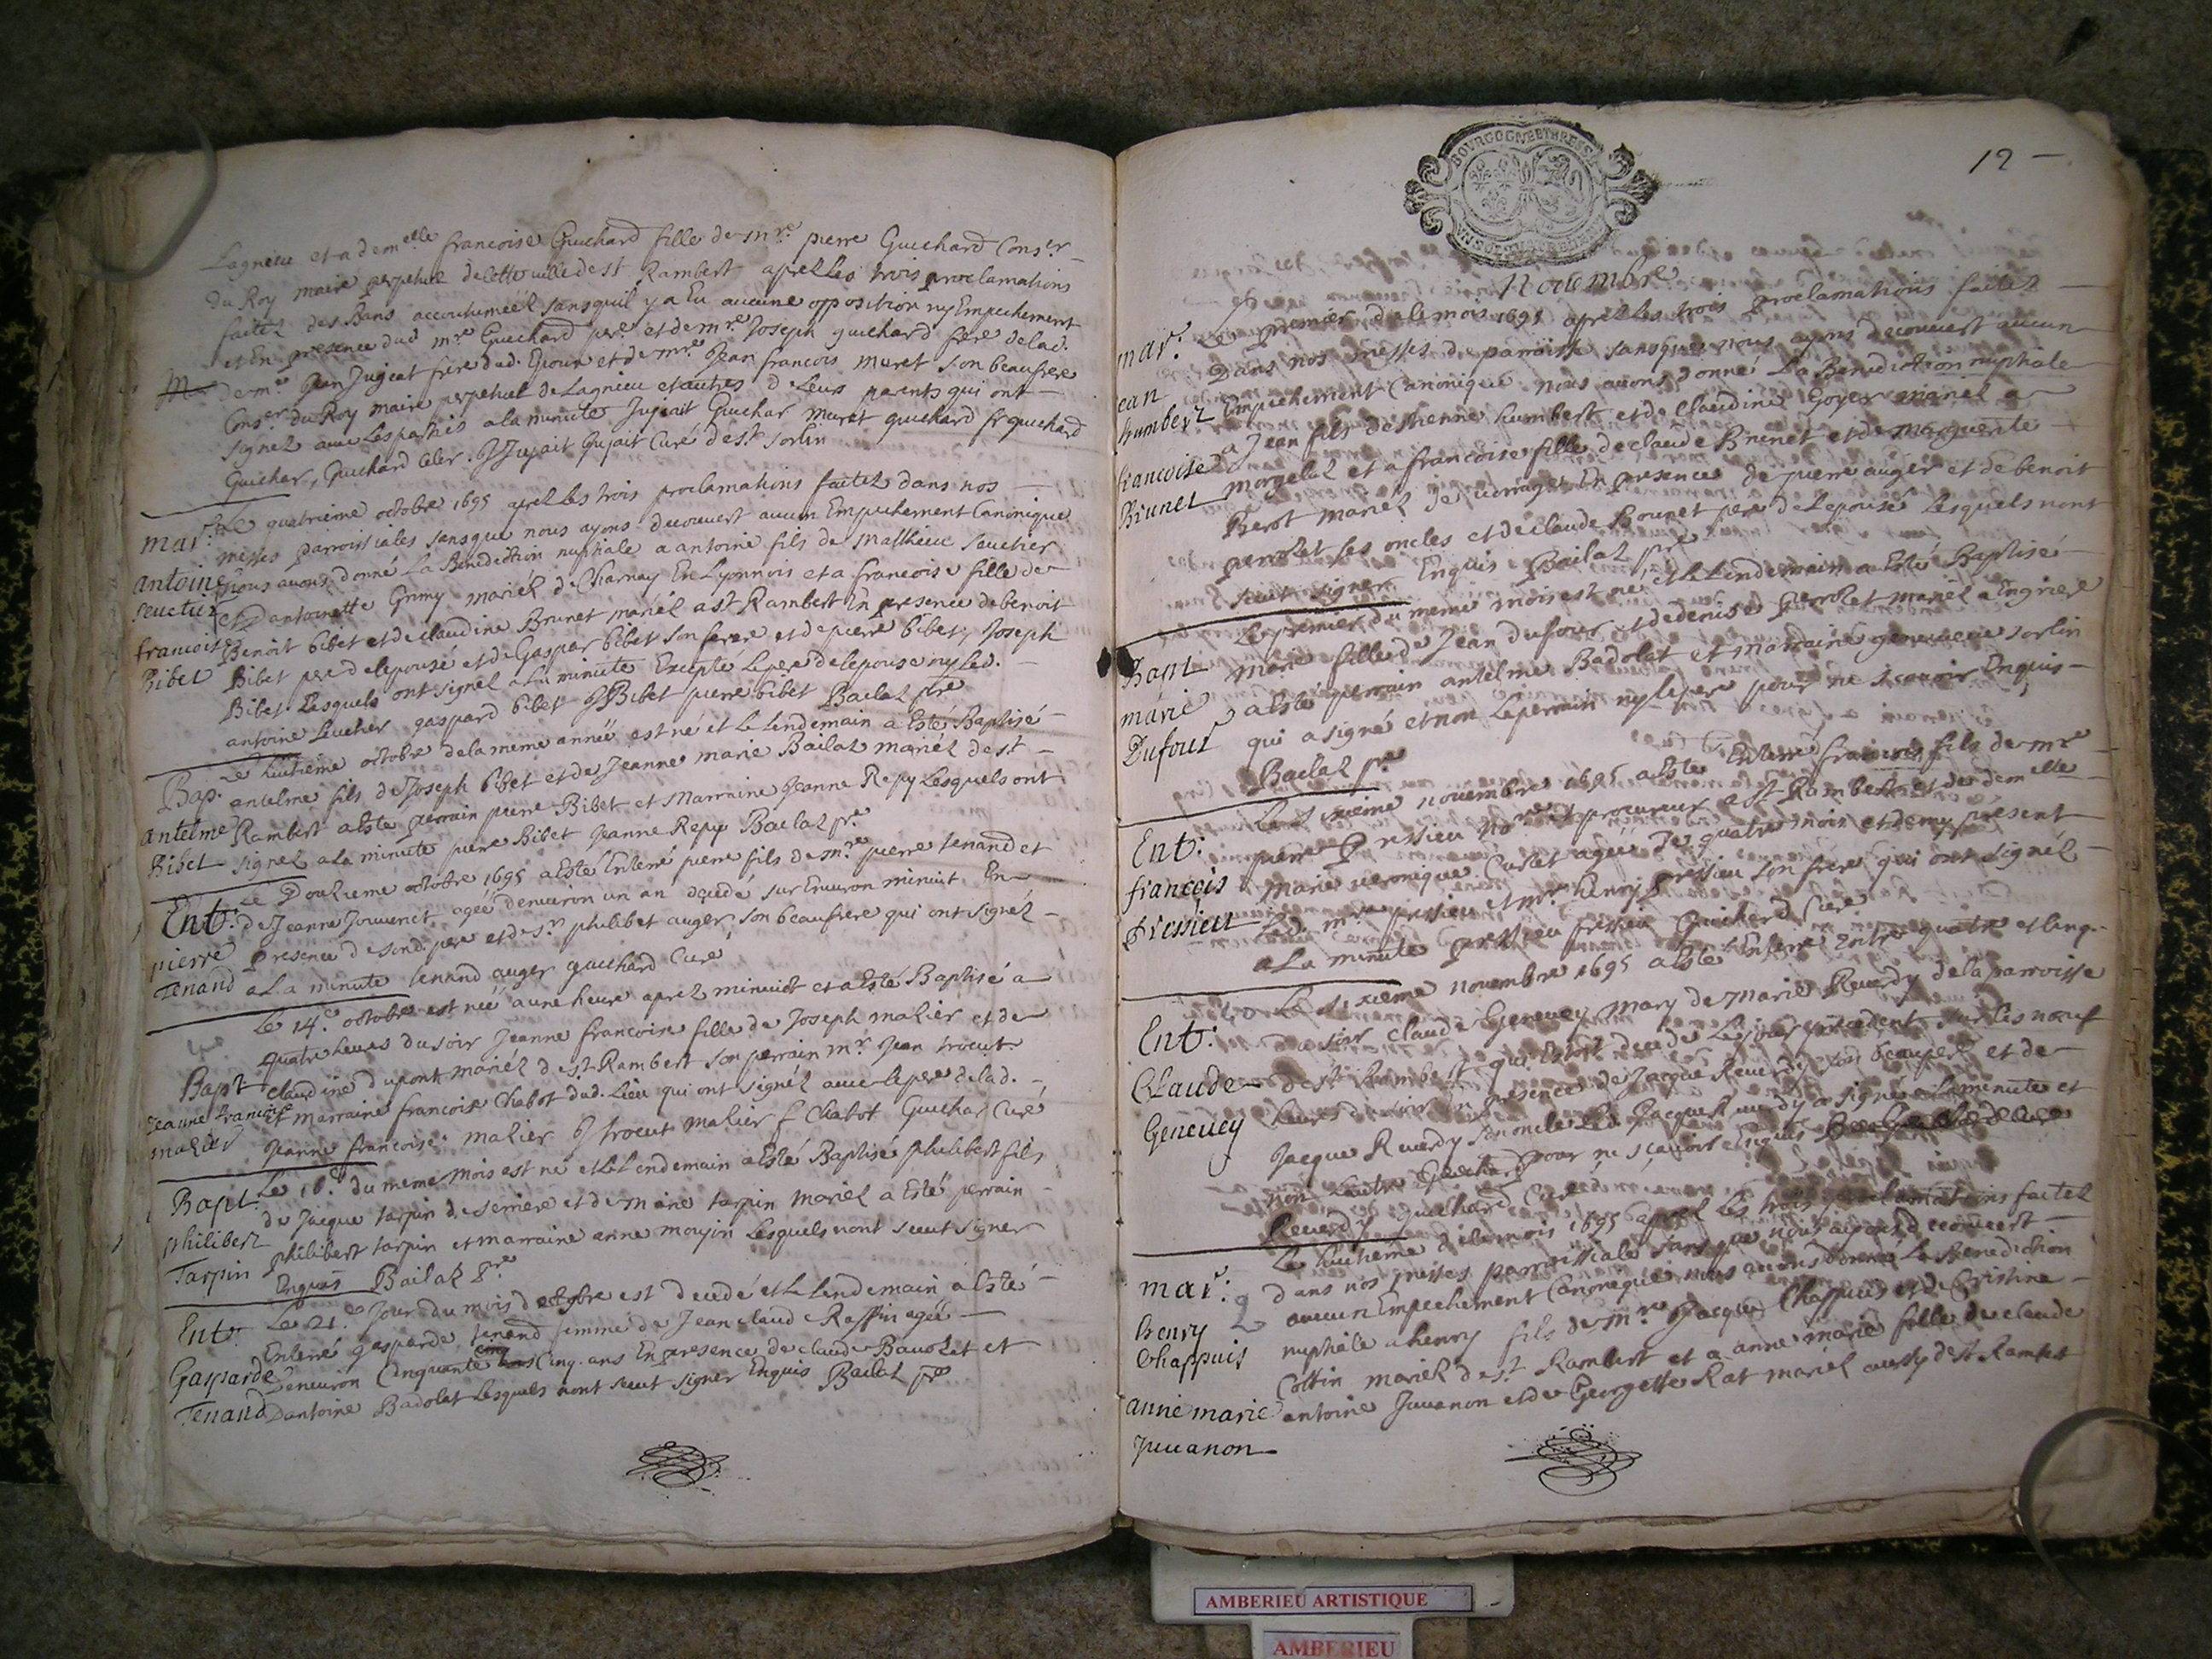 Lagnieu et a dem.elle francoise Guichard fille de mre. pierre Guichard Cons.er
du Roy maire perpetuel de cette ville de st Rambert apres les trois proclamations
faites des Bans accoutumées sans quil y a Eu aucune opposition ny Empechement
et En presence dud mre. Guichard pere et de mre. Joseph guichard frere de lad.
de mre Jean Jujeat frere dud. Epoux et de mre. Jean francois muret son beaufrere
Cons.er du Roy maire perpetuel de Lagnieu et autres de Leurs parents qui ont
signez avec Les parties a la minute Jujeait Guichar muret guichard fr guichard
Guichar, Guichard Jujait Curé de st sorlin
mar.
antoine
francoise
Bibet
Le quatrieme octobre 1695 apres les trois proclamations faites dans nos
messes parroissiales sans que nous ayons decouvert aucun Empechement Canonique
nous avons donné La Benediction nuptiale a antoine fils de mathieu seuchier
et D antoinette Grimy mariez de Charnay En Lyonnois et a francoise fille de
Benoit bibet et de claudine Brunet mariez a st Rambert En presence de benoit
Bibet pere de lepouse et de Gaspar bibet son frere et de pierre bibet, Joseph
Bibet Lesquels ont signez a La minute Excepté Le pere de lepouse ny led.
antoine gaspard bibet J Bibet pierre bibet Bailat pre
Bap.
antelme
Bibet
Le huitieme octobre de la meme année est né et Le Lendemain a Esté Baptisé
antelme fils de Joseph bibet et de Jeanne marie Bailat mariez de st
Rambert a Esté perrain pierre Bibet et Marraine Jeanne Repy Lesquels ont
signez a La minute pierre Bibet Jeanne Repy Bailat pre
Ent.
pierre
Tenand
Le Douzieme octobre 1695 a Esté Enterré pierre fils de mre. pierre tenand et
de Jeanne Jouvenet, agée denviron un an decedé sur Environ minuit En
presence de sond. pere et de sr. philibet auger, son beaufrere qui ont signez
a La minute tenand auger guichard Curé
Bapt
Jeanne francoise
malier
Le 14.e octobre est née a une heure aprez minuict et a Esté Baptisé a
quatre heures du soir Jeanne francoise fille de Joseph malier et de
claudine dupont mariez de st Rambert son perrain mr. Jean trocut
et Marraine francoise Chabot dud. Lieu qui ont signez avec le pere de lad.
Jeanne francoise. malier J trocut malier f Chabot Guichar Curé
Bapt.
philibert
Tarpin
Le 16.e du meme mois est né et Le Lendemain a Esté Baptisé philibert fils
de Jacque tarpin de serriere et de Marie tarpin mariez a Esté perrain
philibert tarpin et marraine anne moujin Lesquels nont sceut signer
Enquis Bailat pre
Ent.
Gasparde
Tenand
Le 21.e Jour du mois d octobre est decedé et Le Lendemain a Esté
Enterré gasparde tenand femme de Jean claude Raffin agée
denviron Cinquante cinq ans En presence de claude et
Dantoine Badolat Lesquels nont sceut signer Enquis Bailat pre
BOVRGOGNE ET BRESSE
12
Novembre
mar.
Jean
humbert
francoise
Brunet
Le premier de le mois 1695 aprez les trois proclamations faites
Dans nos messes de parroisse sans que nous ayons decouvert aucun
Empechement Canonique nous avons donné La Benediction nuptiale
a Jean fils de humbert et de claudine Goyer mariez a
morgelaz et a francoise fille de claude Brunet et de marguerite
Berot mariez de En presence de pierre auger et de benoit
perrolet ses oncles et de claude Brunet pere de Lepouse Lesquels nont
sceut signer Enquis Bailat pre
Bapt
marie
Dufour
Le premier du meme mois est né et Le Lendemain a Esté Baptisé
marie fille de Jean dufour et de denise perrolet mariez a
a Esté perrain antelme Badolat et marraine genevieve sorlin
qui a signé et non Le perrain ny le pere pour ne scavoir Enquis
Bailat pre
Ent.
francois
pressieu
Le sixieme novembre 1695 a Esté Enterré francois fils de mre
pierre pressieu no.re et procureur a st Rambert et de dem.elle
marie veronique Curlet agée de quatre mois et demy present
Led. mre. pressieu et mr. henry pressieu son frere qui ont signez
a La minute pressieu pressieu Guichard Curé
Ent.
Claude
Genevey
Le sixieme novembre 1695 a Esté Enterré Entre quatre et cinq
du soir claude Genevey mary de marie Reverdy de la parroisse
de st Rambert qui Estoit decedé Le jour precedent sur les neuf
heures du soir en presence de Jacque Reverdy son beaupere et de
Jacque Reverdy son oncle Led. Jacque Reverdy a signé a La minute et
non Lautre pour ne scavoir Enquis
Reverdy Guichard Curé
mar.
henry
Chappuis
anne marie
Juvanon
Le huitieme de le mois 1695 aprez Les trois proclamations faites
dans nos messes parroissiale sans que nous ayons decouvert
aucun Empechement Canonique nous avons donné La Benediction
nuptiale a henry fils de mre Jacque Chappuis et de Cristine
Cottin mariez de st Rambert et a anne marie fille de claude
antoine Juvanon et de Georgette Rat mariez aussy de st Rambert
AMBERIEU ARTISTIQUE
AMBERIEU